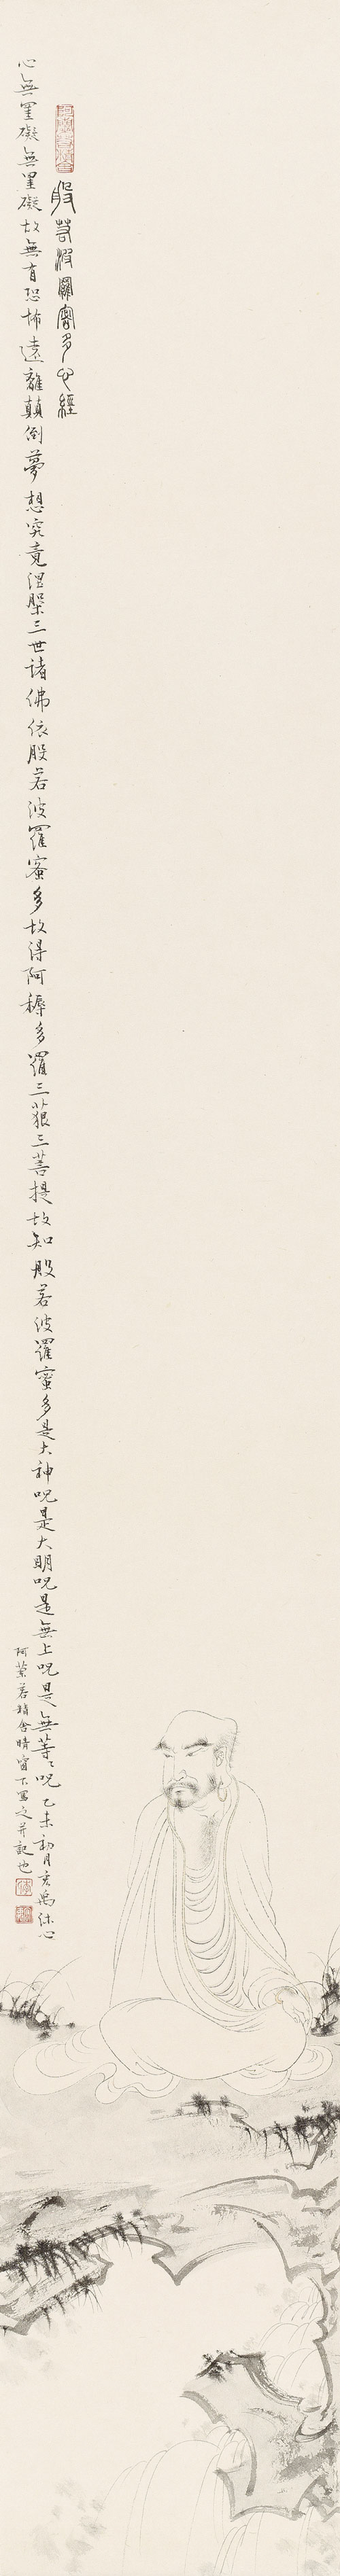 般若波羅蜜多心經
心無罣礙無罣礙故無有恐怖遠離顛倒夢想究竟涅槃三世諸佛依般若波羅蜜多故得阿耨多羅三藐三菩提故知般若波羅蜜多是大神呪是大明呪是無上呪是無等〻呪乙未初月玄禹沐心
阿蘭若精舍晴窗下寫之并記也